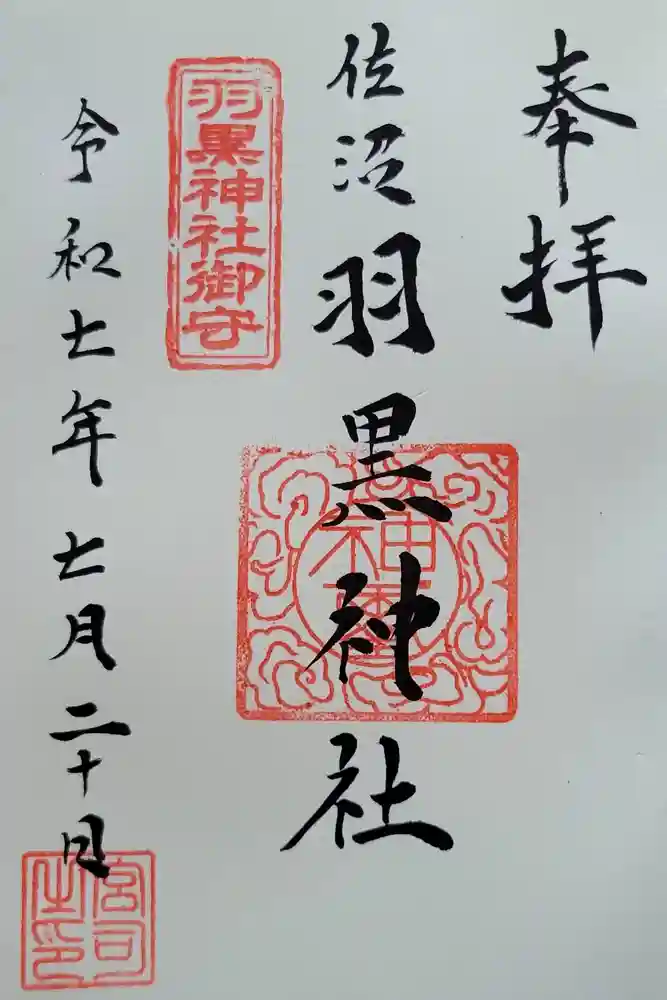 奉拝
佐沼
羽黒神社
羽黒神社御守
神璽
令和七年七月二十日
宮司之印